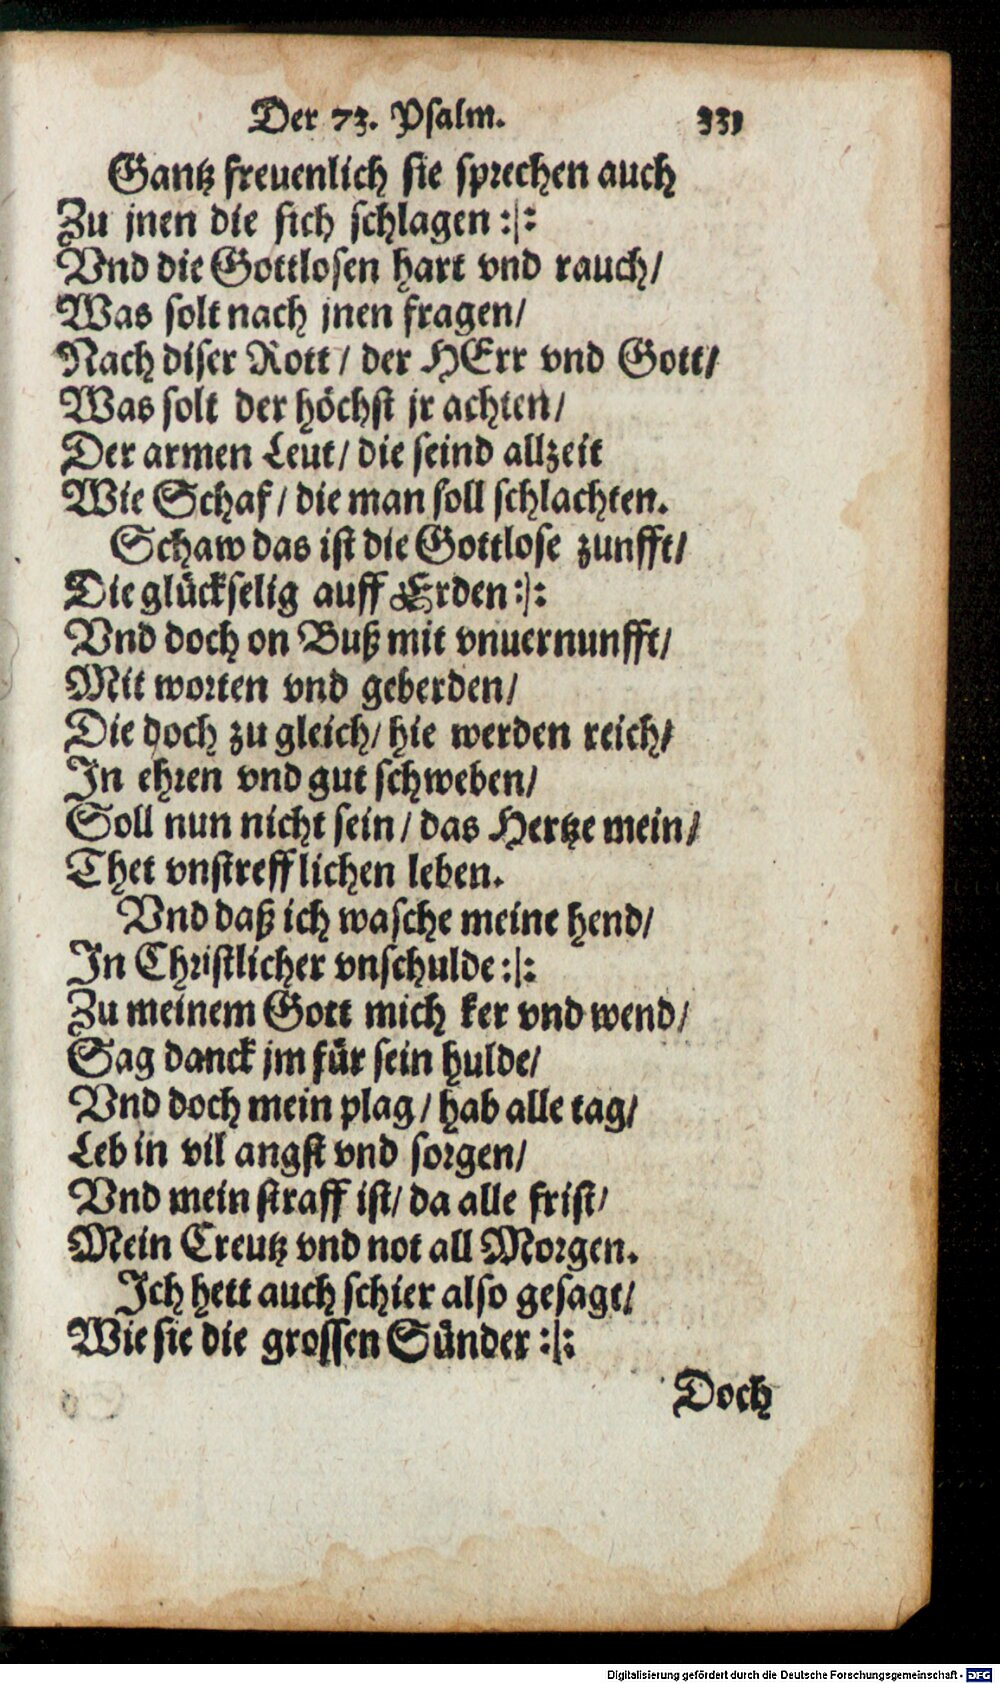 Der 73. Psalm. 331
Gantz freuenlich sie sprechen auch
Zu jnen die sich schlagen :|:
Vnd die Gottlosen hart vnd rauch/
Was solt nach jnen fragen/
Nach diser Rott / der HErr vnd Gott/
Was solt der höchst jr achten/
Der armen Leut/ die seind allzeit
Wie Schaf / die man soll schlachten.
Schaw das ist die Gottlose zunfft/
Die glückselig auff Erden :|:
Vnd doch on Buß mit vnuernunfft/
Mit worten vnd geberden/
Die doch zu gleich/ hie werden reich/
In ehren vnd gut schweben/
Soll nun nicht sein / das Hertze mein/
Thet vnstrefflichen leben.
Vnd daß ich wasche meine hend/
In Christlicher vnschulde :|:
Zu meinem Gott mich ker vnd wend/
Sag danck jm für sein hulde/
Vnd doch mein plag / hab alle tag/
Leb in vil angst vnd sorgen/
Vnd mein straff ist/ da alle frist/
Mein Creutz vnd not all Morgen.
Ich hett auch schier also gesagt/
Wie sie die grossen Sünder :|:
Doch
Digitalisierung gefördert durch die Deutsche Forschungsgemeinschaft - DFG